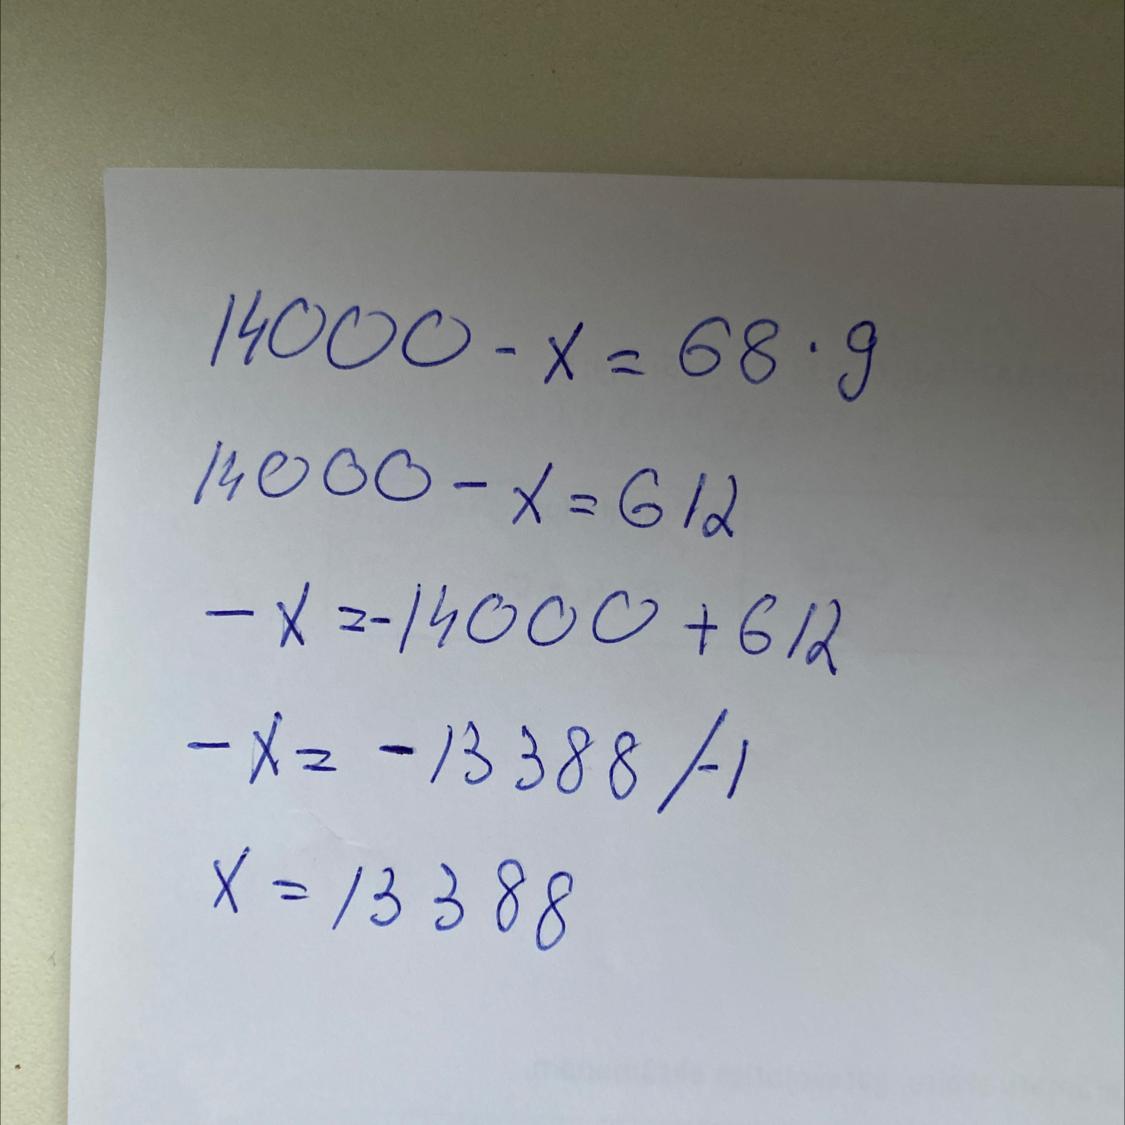 14000 - x = 68 · 9
14000 - x = 612
- x = -14000 + 612
- x = - 13388 /-1
x = 13388